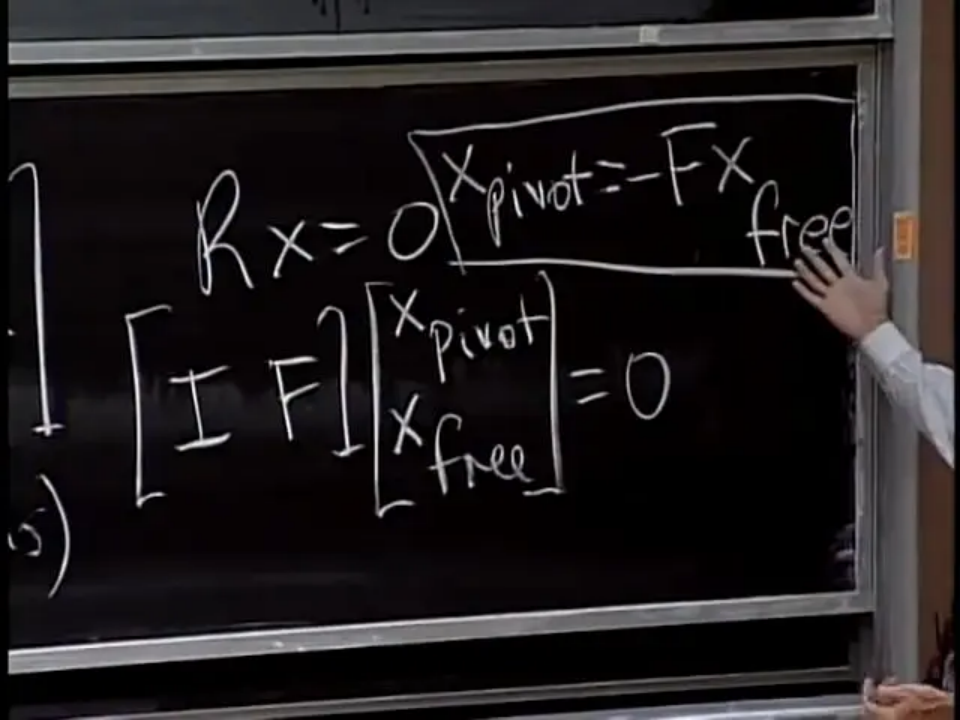 Rx = 0
x pivot = -F x free
[I F] [x pivot
x free] = 0